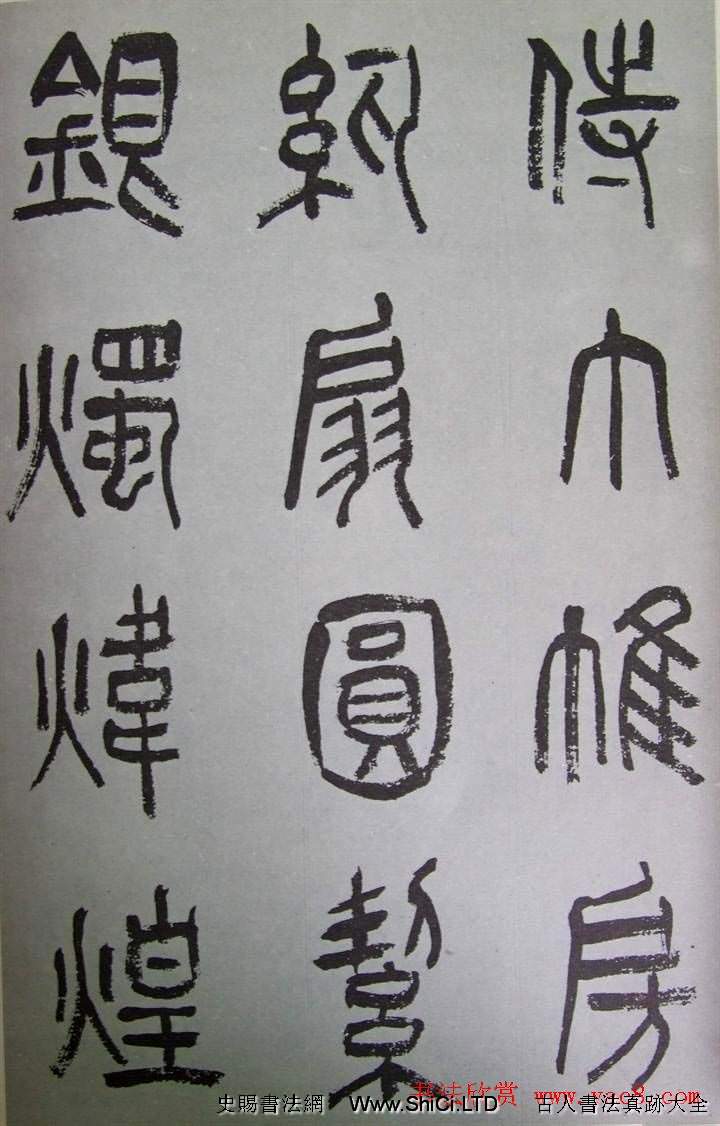 侍巾帷房
紈扇圓絜
銀燭煒煌
書法欣賞 www.yac8.com
史賜書法網 Www.ShiCi.LTD 古人書法真跡大全